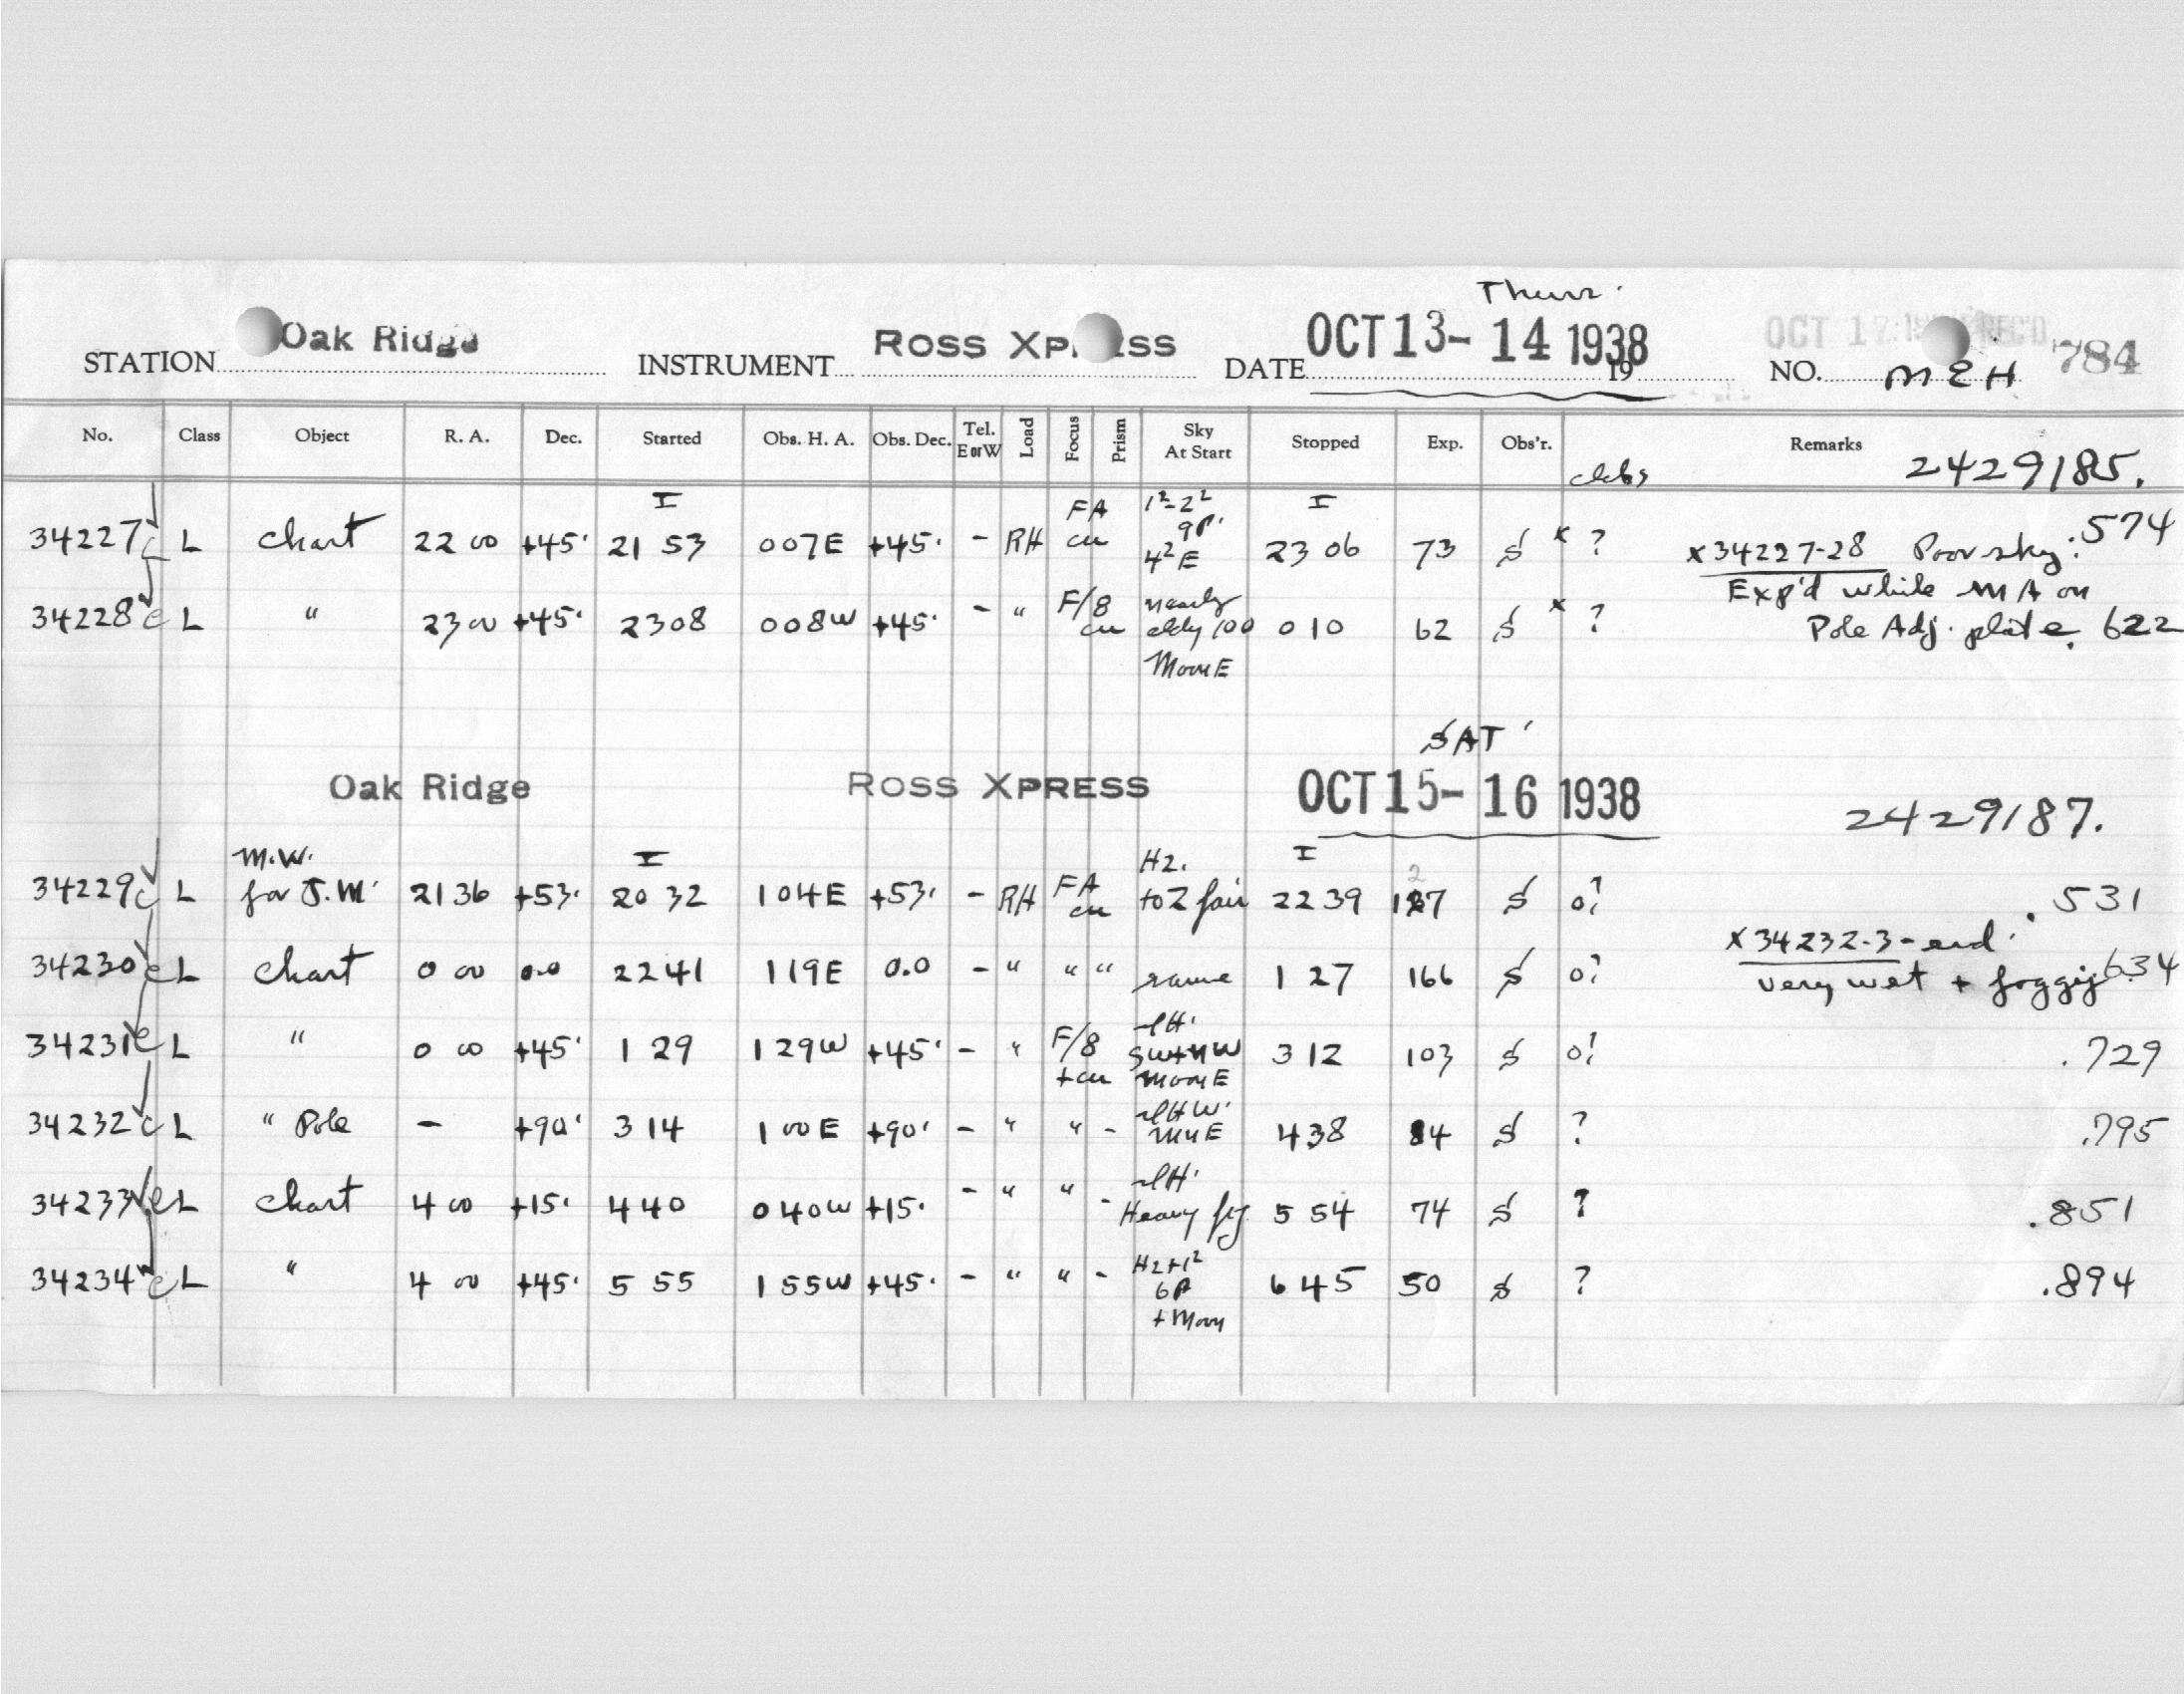 Thurs.
STATION Oak Ridge INSTRUMENT ROSS XPRESS DATE OCT 13-14 1938 19 NO. MEH 784
OCT 17 REC'D
No. Class Object R. A. Dec. Started Obs. H. A. Obs. Dec. Tel. E or W Load Focus Prism Sky At Start Stopped Exp. Obs'r. Remarks
2429185.
34227 L chart 22 00 +45. I 21 53 007E +45. - RH FA cu 9P. 4² E I 23 06 73 S x ? x34227-28 Poor sky. .574
Exp'd while MA on
34228 L " 23 00 +45. 23 08 008W +45. - " F/8 cu nearly cldy 100 Moon E 0 10 62 S x ? Pole Adj. plate. 622
SAT.
Oak Ridge ROSS XPRESS OCT 15-16 1938
2429187.
34229 L M.W. for J.M. 21 36 +53. I 20 32 104E +53. - RH FA cu Hz. to Z fair I 22 39 127 S o? .531
x34232-3-end.
34230 L chart 0 00 0.0 22 41 119E 0.0 - " " " same 1 27 166 S o? very wet + foggy 634
34231 L " 0 00 +45. 1 29 129W +45. - " F/8 +cu SW+NW moon E 3 12 103 S o? .729
34232 L " Pole - +90. 3 14 1 00E +90. - " " - 4 38 84 S ? .795
34233 L chart 4 00 +15. 4 40 040W +15. - " " - Heavy fg 5 54 74 S ? .851
34234 L " 4 00 +45. 5 55 155W +45. - " " - 6P + Moon 6 45 50 S ? .894